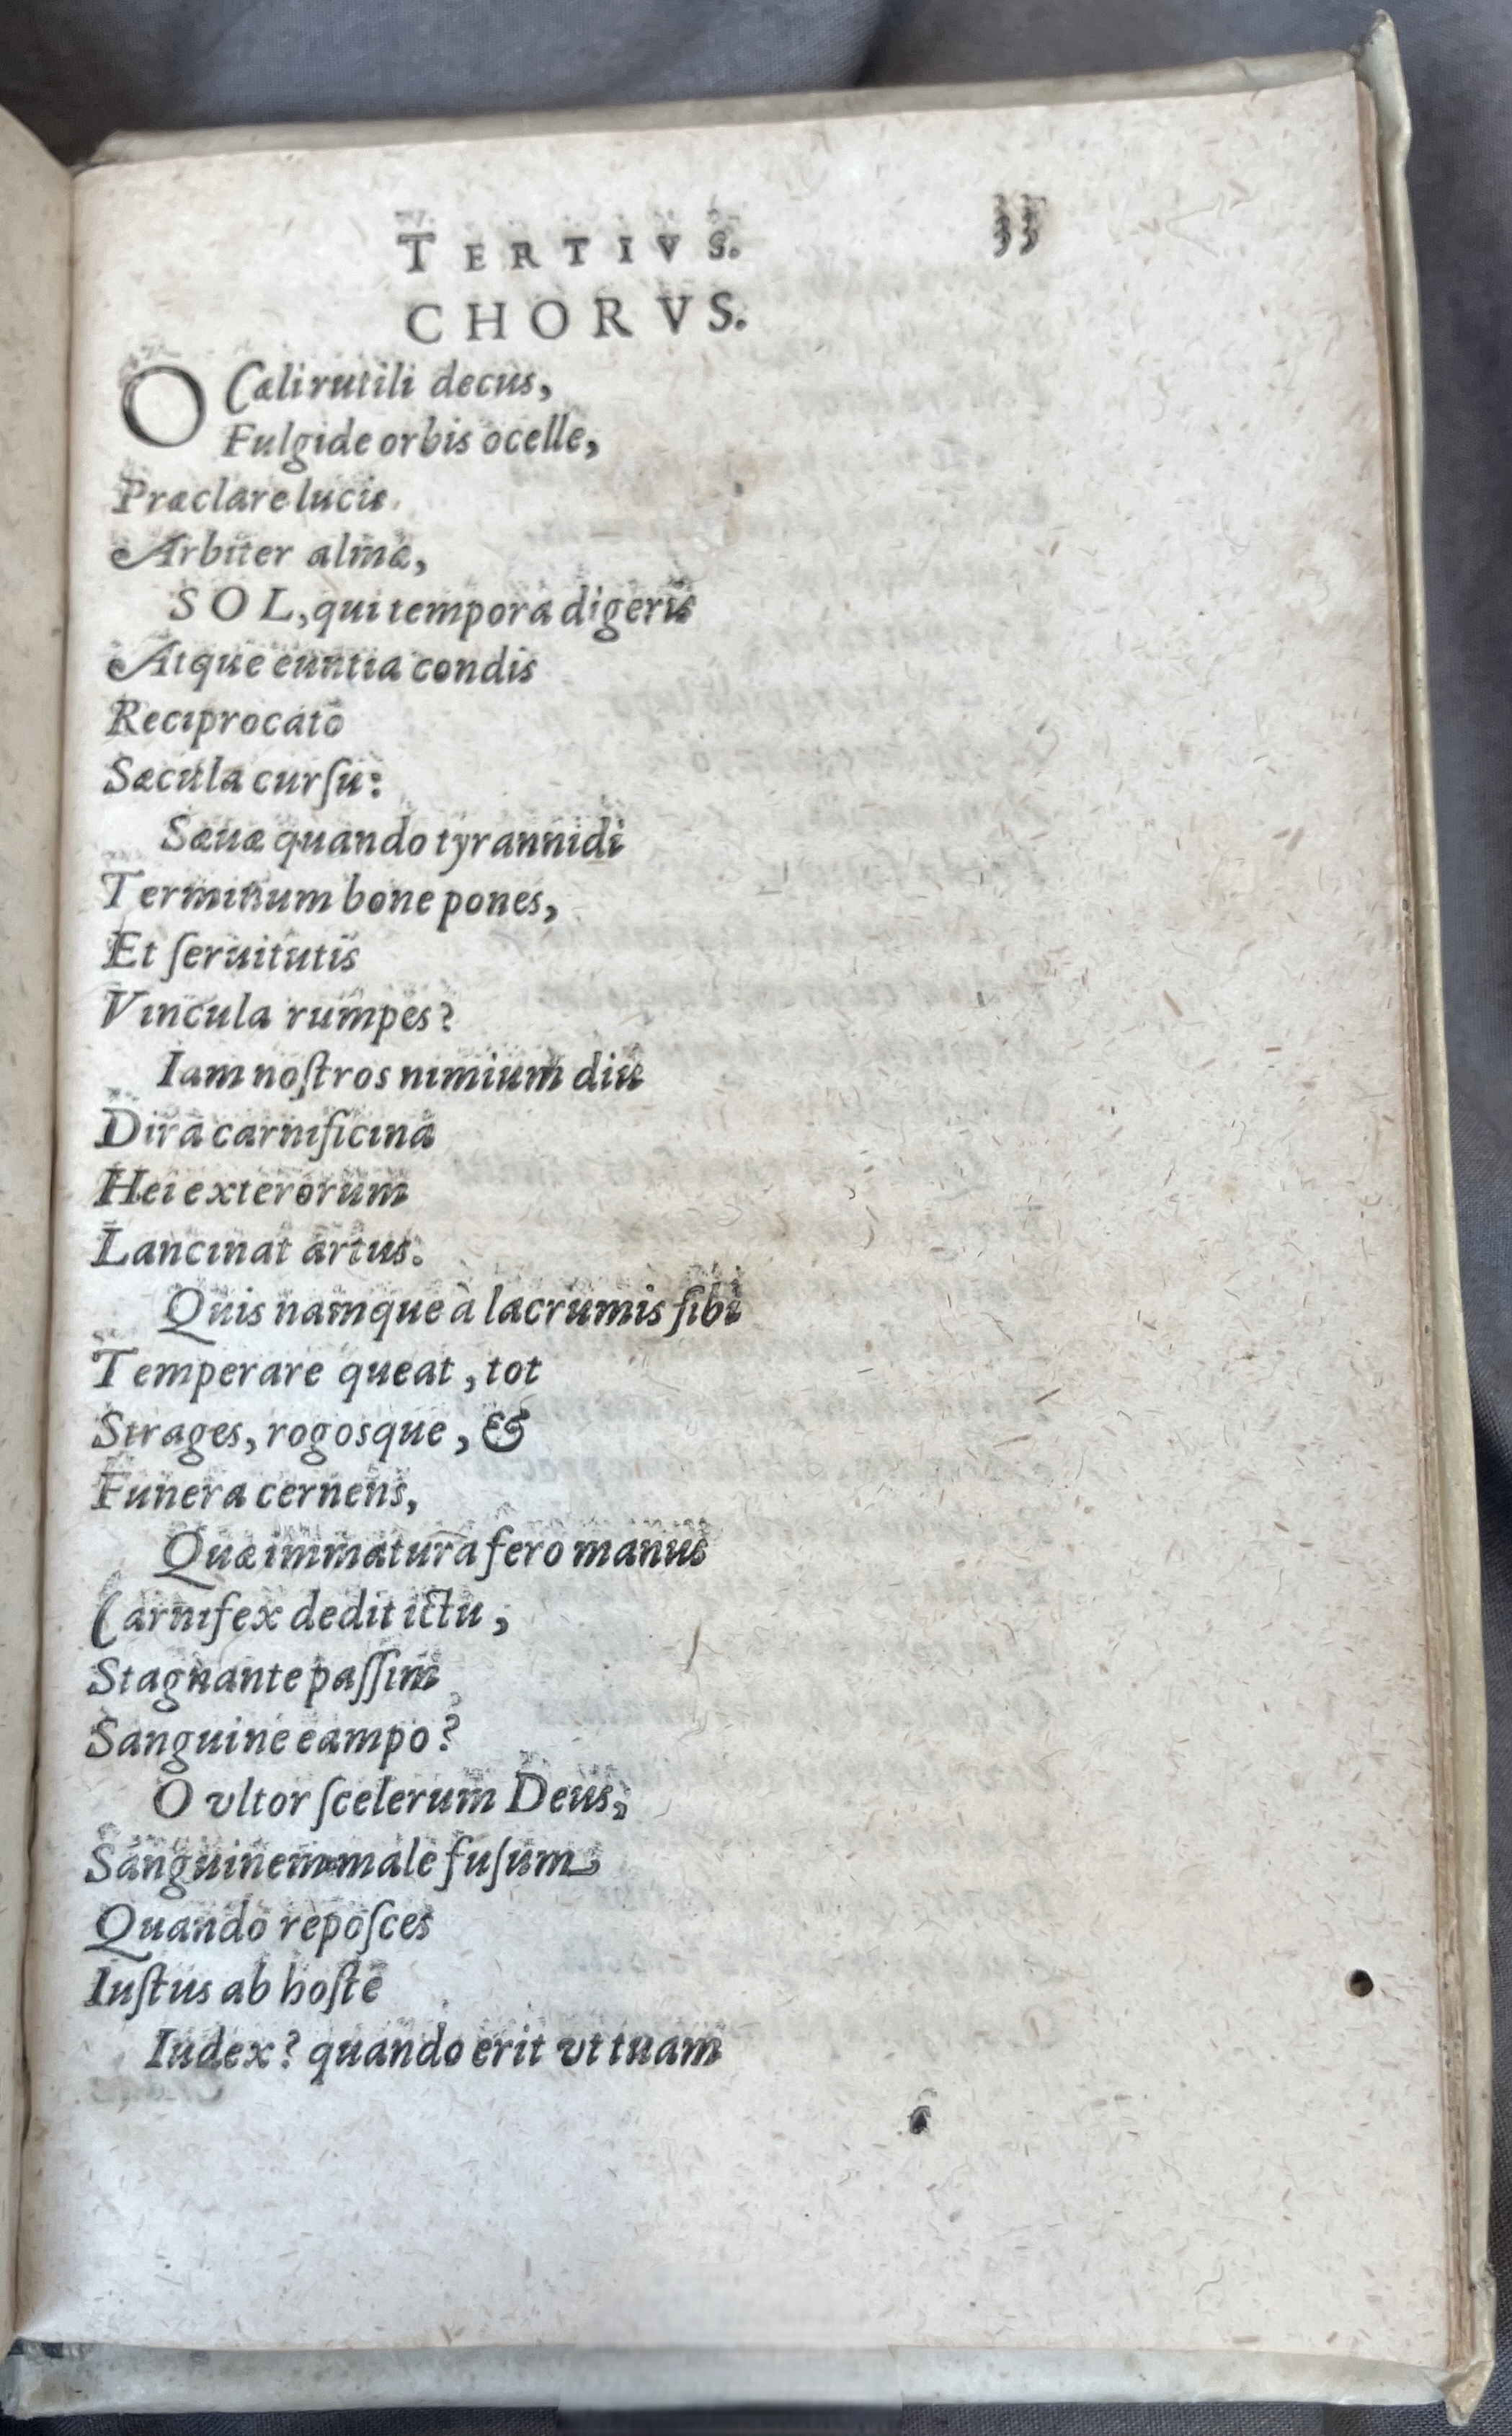 TERTIVS. 33
CHORVS.
O Cæli rutili decus,
Fulgide orbis ocelle,
Præclare lucis
Arbiter almæ,
SOL, qui tempora digeris
Atque euntia condis
Reciprocato
Sæcula curſu:
Sæuæ quando tyrannidi
Terminum bone pones,
Et ſeruitutis
Vincula rumpes?
Iam noſtros nimium diu
Dira carnificina
Hei exterorum
Lancinat artus.
Quis namque à lacrumis ſibi
Temperare queat, tot
Strages, rogosque, &
Funera cernens,
Quæ immatura fero manus
Carnifex dedit ictu,
Stagnante paſſim
Sanguine eampo?
O vltor ſcelerum Deus,
Sanguinem male fuſum
Quando repoſces
Iuſtus ab hoſte
Iudex? quando erit vt tuam